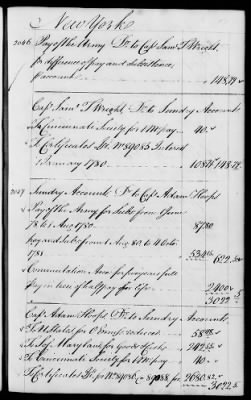 New York
2046 Pay of the Army Dr. to Capt. Saml. T Wright
for difference of pay and subsistence,
p account 148.78
Capt. Saml. T Wright, Dr. to Sundry Accounts
To Cincinnati Society for 1 Mo. pay 40.
To Certificates No. 89085 Interest
1 January 1780 108.78 148.78
2047 Sundry Accounts Dr. to Capt. Adam Hoops
Pay of the Army for Subs. from June
78 to 1 Aug 1780 8780
pay and Subs. from 1 Aug. 80 to 4 Octo.
1781 534
622.
Commutation Acco. for five years full
pay in lieu of half pay for life 2400
3022
Capt. Adam Hoops Dr. to Sundry Accounts,
58
To Maryland for Goods 242
To Cincinnati Society for 1 Mo. pay 40
To Certificates for No. 89086 @ 89088 for 2680
3022